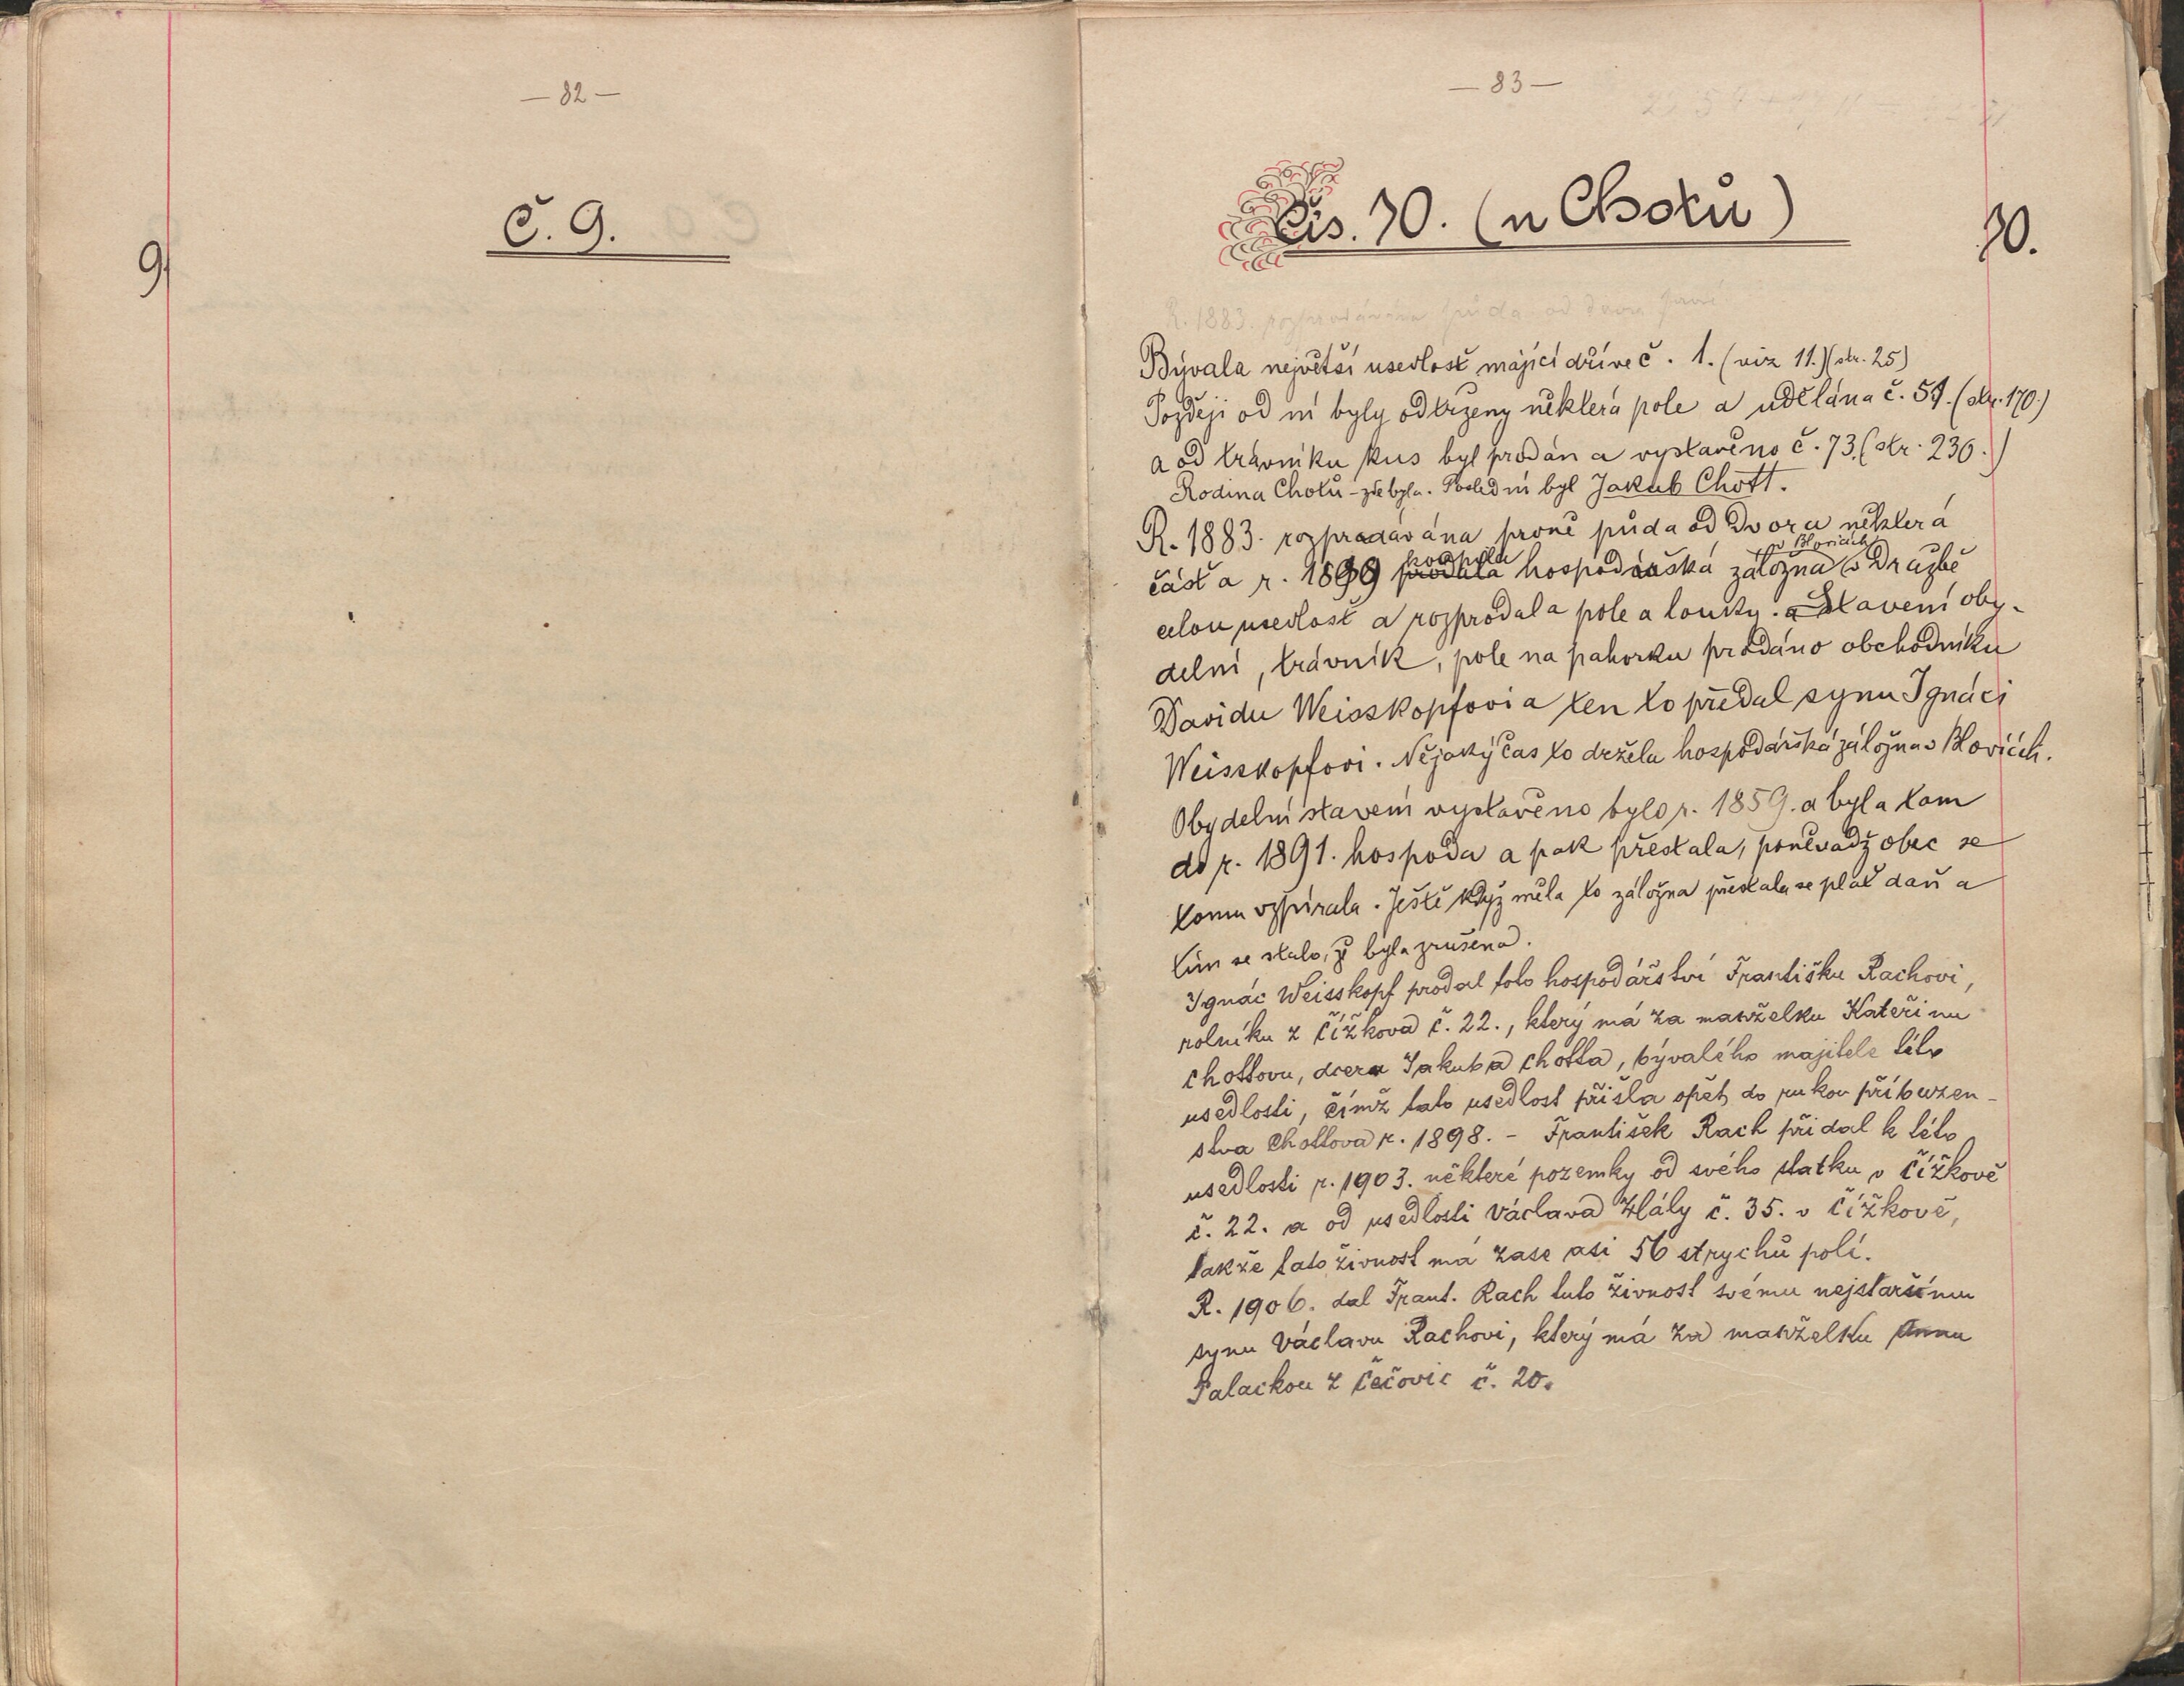 — 82 —
Č. 9.
9
— 83 —
Čís. 10. (u Chotů)
10.
R. 1883. rozprodávána půda od dvora první
Bývala největší usedlosť mající dříve č. 1. (viz 11.)(str. 25)
Později od ní byly odtrženy některá pole a udělána č. 54. (str. 170.)
a od trávníku kus byl prodán a vystavěno č. 73. (str. 236.)
Rodina Chotů - zde byla. Poslední byl Jakub Chott.
R. 1883. rozprodávána prvně půda od Dvora některá
část a r. 1889 prodala koupila hospodářská záložna v Blovicích v Družbě
celou usedlosť a rozprodala pole a louky. a Stavení oby-
delní, trávník, pole na pahorku prodáno obchodníku
Davidu Weisskopfovi a ten to předal synu Ignáci
Weisskopfovi. Nějaký čas to držela hospodářská záložna v Blovicích.
Obydelní stavení vystavěno bylo r. 1859. a byla tam
do r. 1891. hospoda a pak přestala, poněvadž obec se
tomu vzpírala. Ještě když měla to záložna přestala se plat daň a
tím se stalo, že byla zrušena.
Ignác Weisskopf prodal toto hospodářství Františku Rachovi,
rolníku z Čížkova č. 22., který má za manželku Kateřinu
Chottovu, dceru Jakuba Chotta, bývalého majitele této
usedlosti, čímž tato usedlost přišla opět do rukou příbuzen-
stva Chottova r. 1898. - František Rach přidal k této
usedlosti r. 1903. některé pozemky od svého statku v Čížkově
č. 22. a od usedlosti Václava Hály č. 35. v Čížkově,
takže tato živnost má zase asi 56 strychů polí.
R. 1906. dal Frant. Rach tuto živnost svému nejstaršímu
synu Václavu Rachovi, který má za manželku Annu
Palackou z Čečovic č. 20.